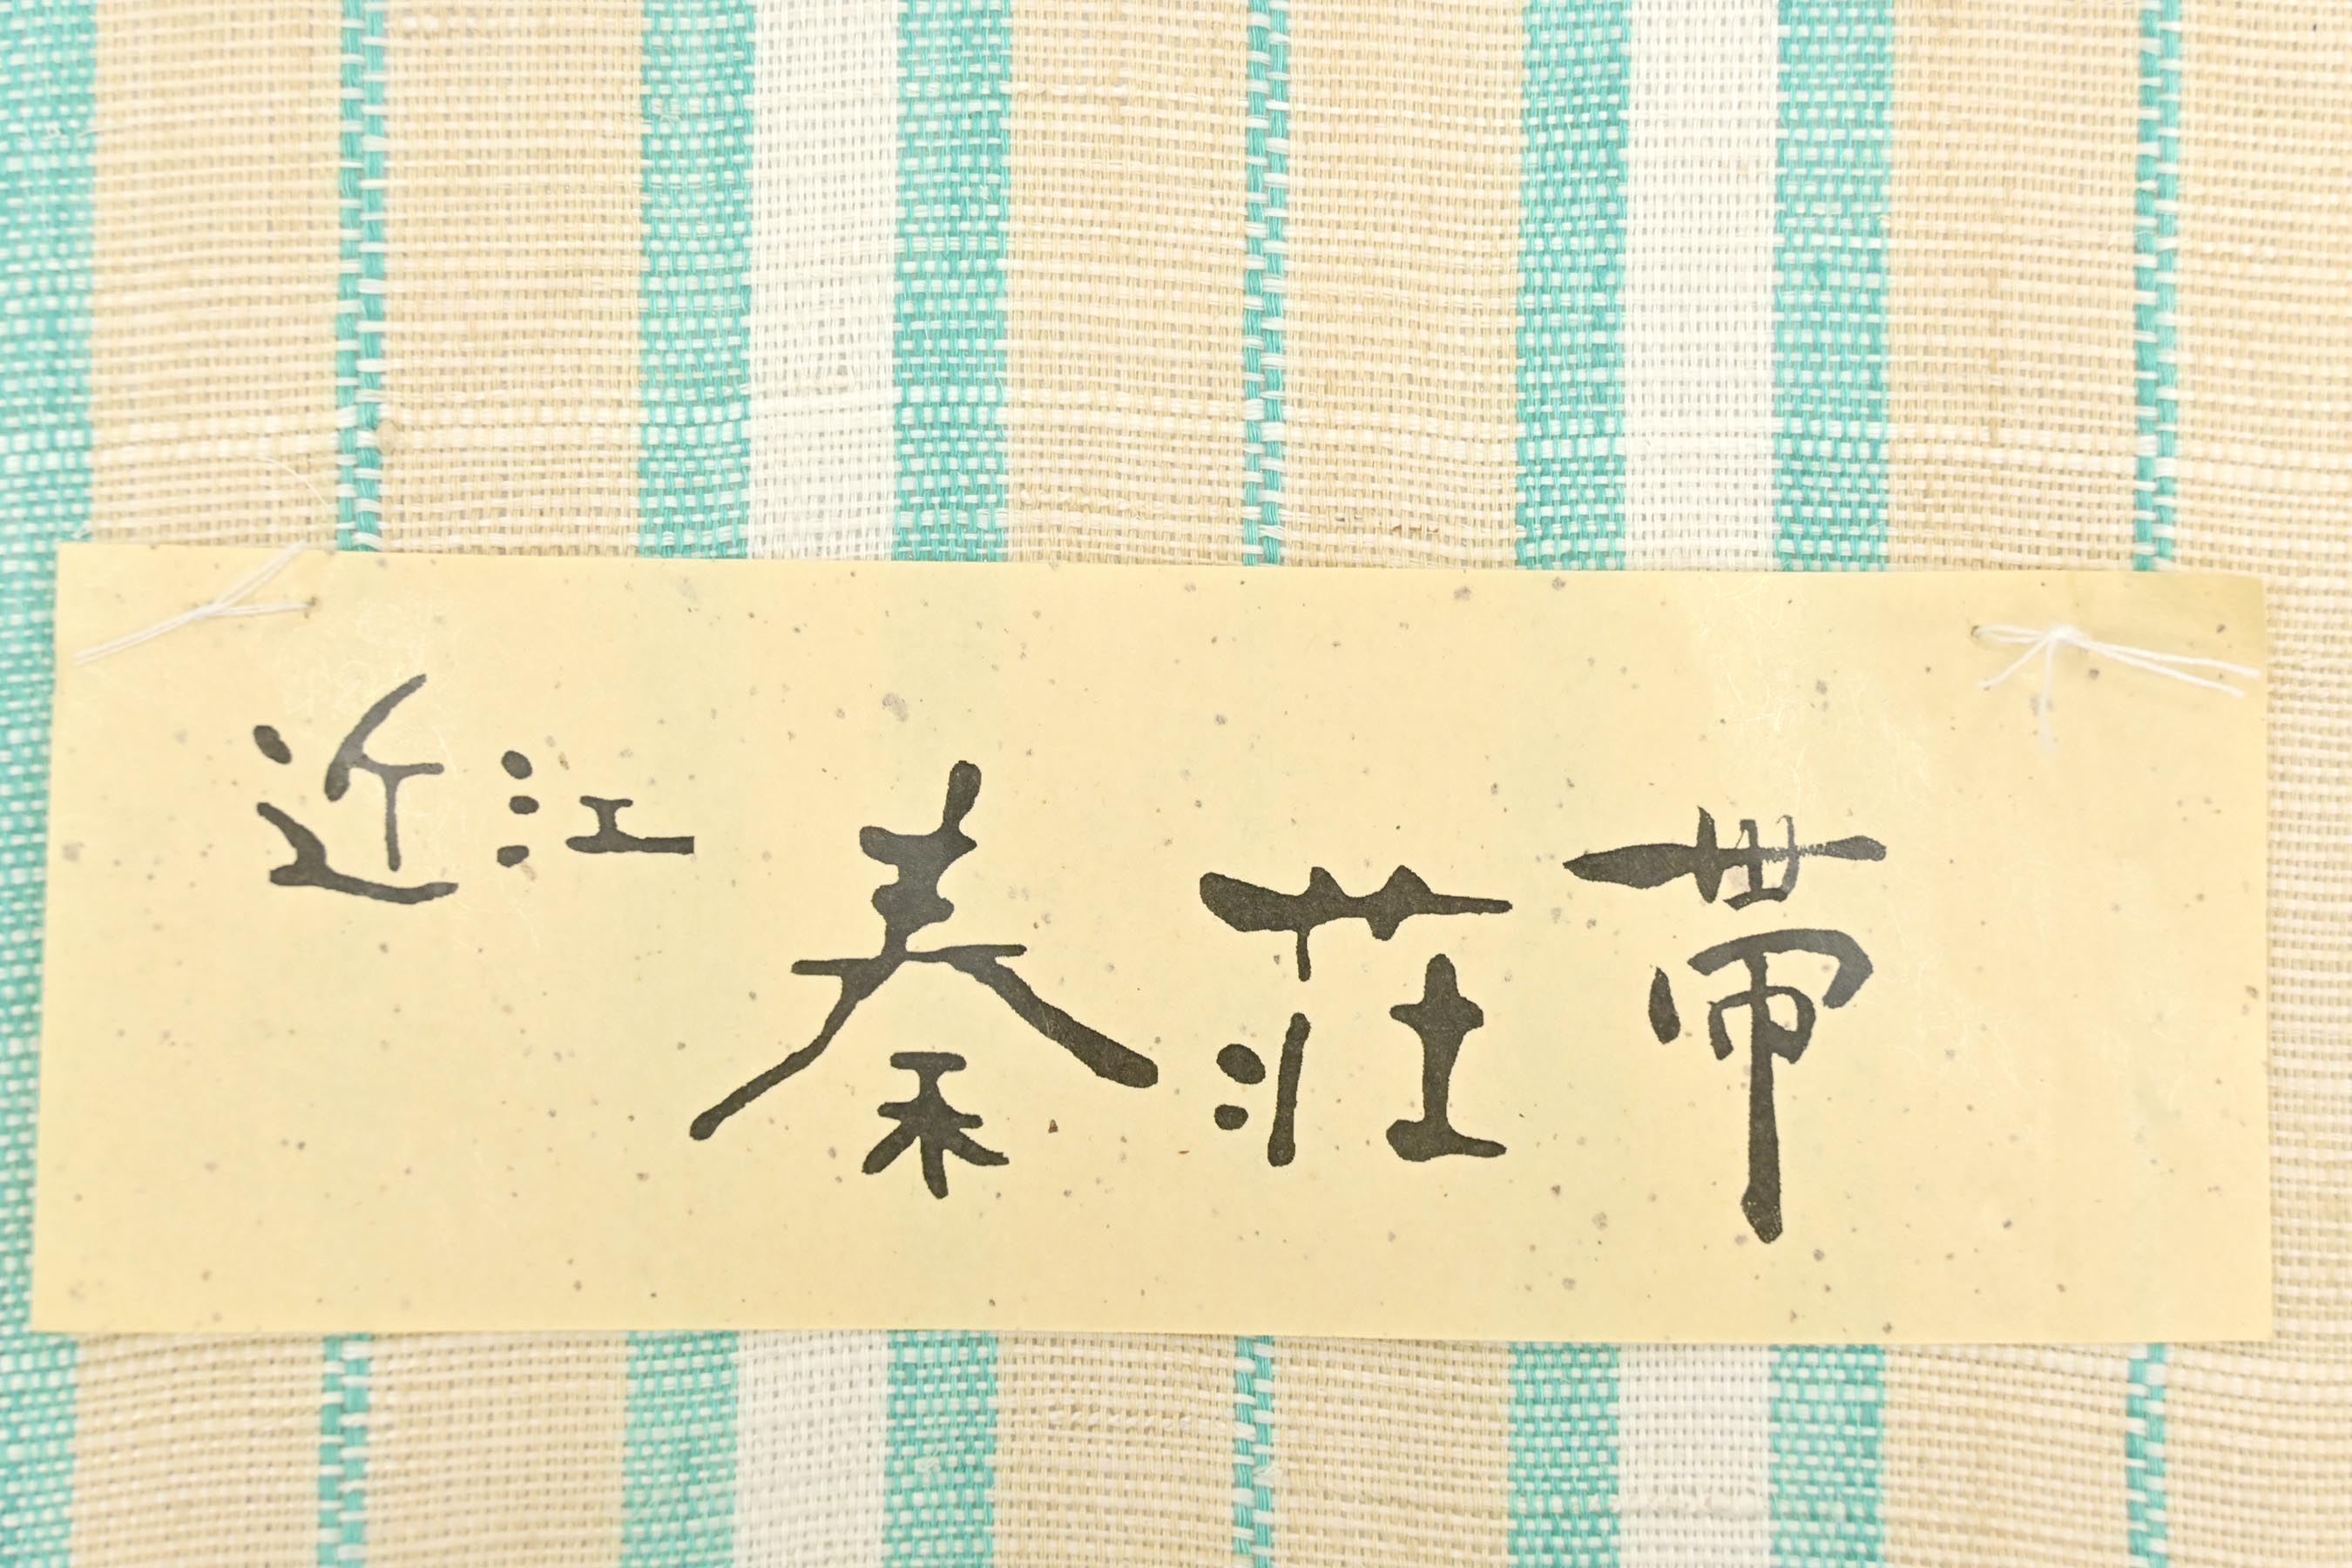 近江秦荘帯